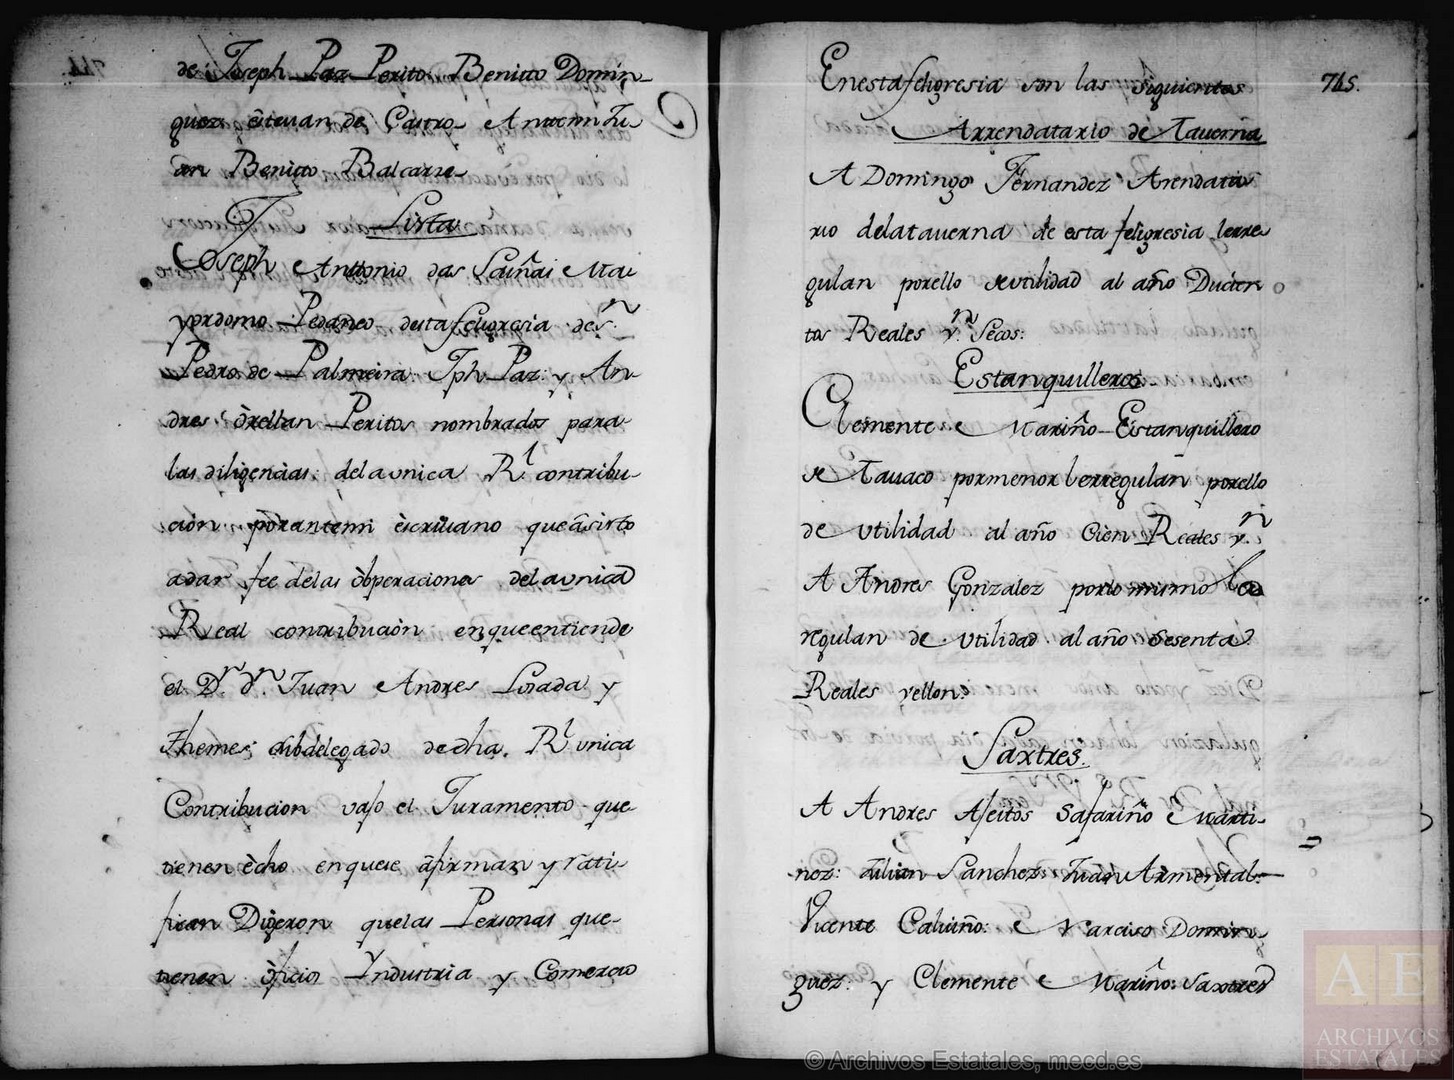 de Joseph Paz Perito Benitto Domin
guez èstevan de Castro Antemi Ju
an Benitto Balcarze
Lista
Joseph Anttonio das Saiñas Ma
yordomo Pedaneo desta feligresia de Sn
Pedro de Palmeira Jph Paz y An
dres òrellan Peritos nombrados para
las diligencias delaunica Rl contribu
ción porantemi èscrivano que àsisto
adar fee delas òbperaciones delaunica
Real contribución enqueentiende
el Dr. dn. Juan Andres Losada y
themes subdelegado dedha. Rl unica
Contribucion vajo el Juramento que
tienen ècho enquese àfirman y rati
fican Dijeron quelas Personas que
tienen òficios Yndustria y Comercio
Enestafeligresia son las siguientes
715.
Arrendatario de Taverna
A Domingo Fernandez Arendata
rio delataverna de esta feligresia lerre
gulan porello deutilidad al año Ducien
tos Reales vn. Secos:
Estanquilleros
Clemente Mariño Estanquillero
de Tauaco pormenor lerregulan porello
de utilidad al año Cien Reales vn.
A Andres Gonzalez porlomismo le
regulan de utilidad al año Sesenta
Reales vellon:
Saxtres.
A Andres Afeitos Safariño Marti
nez: Julian Sanchez: Juan Armental:
Vicente Calviño: Narciso Domin
guez: y Clemente Mariño: Saxtres
© Archivos Estatales, mecd.es
AE
ARCHIVOS
ESTATALES